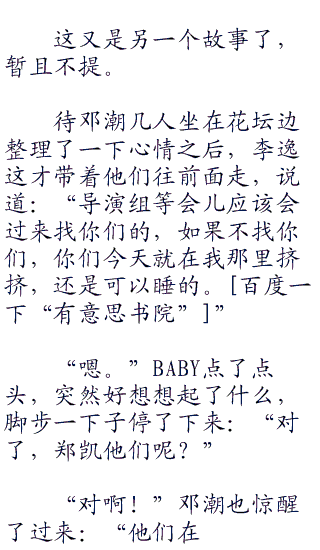 这又是另一个故事了，
暂且不提。
待邓潮几人坐在花坛边
整理了一下心情之后，李逸
这才带着他们往前面走，说
道：“导演组等会儿应该会
过来找你们的，如果不找你
们，你们今天就在我那里挤
挤，还是可以睡的。[百度一
下“有意思书院”]”
“嗯。”BABY点了点
头，突然好想想起了什么，
脚步一下子停了下来：“对
了，郑凯他们呢？”
“对啊！”邓潮也惊醒
了过来：“他们在